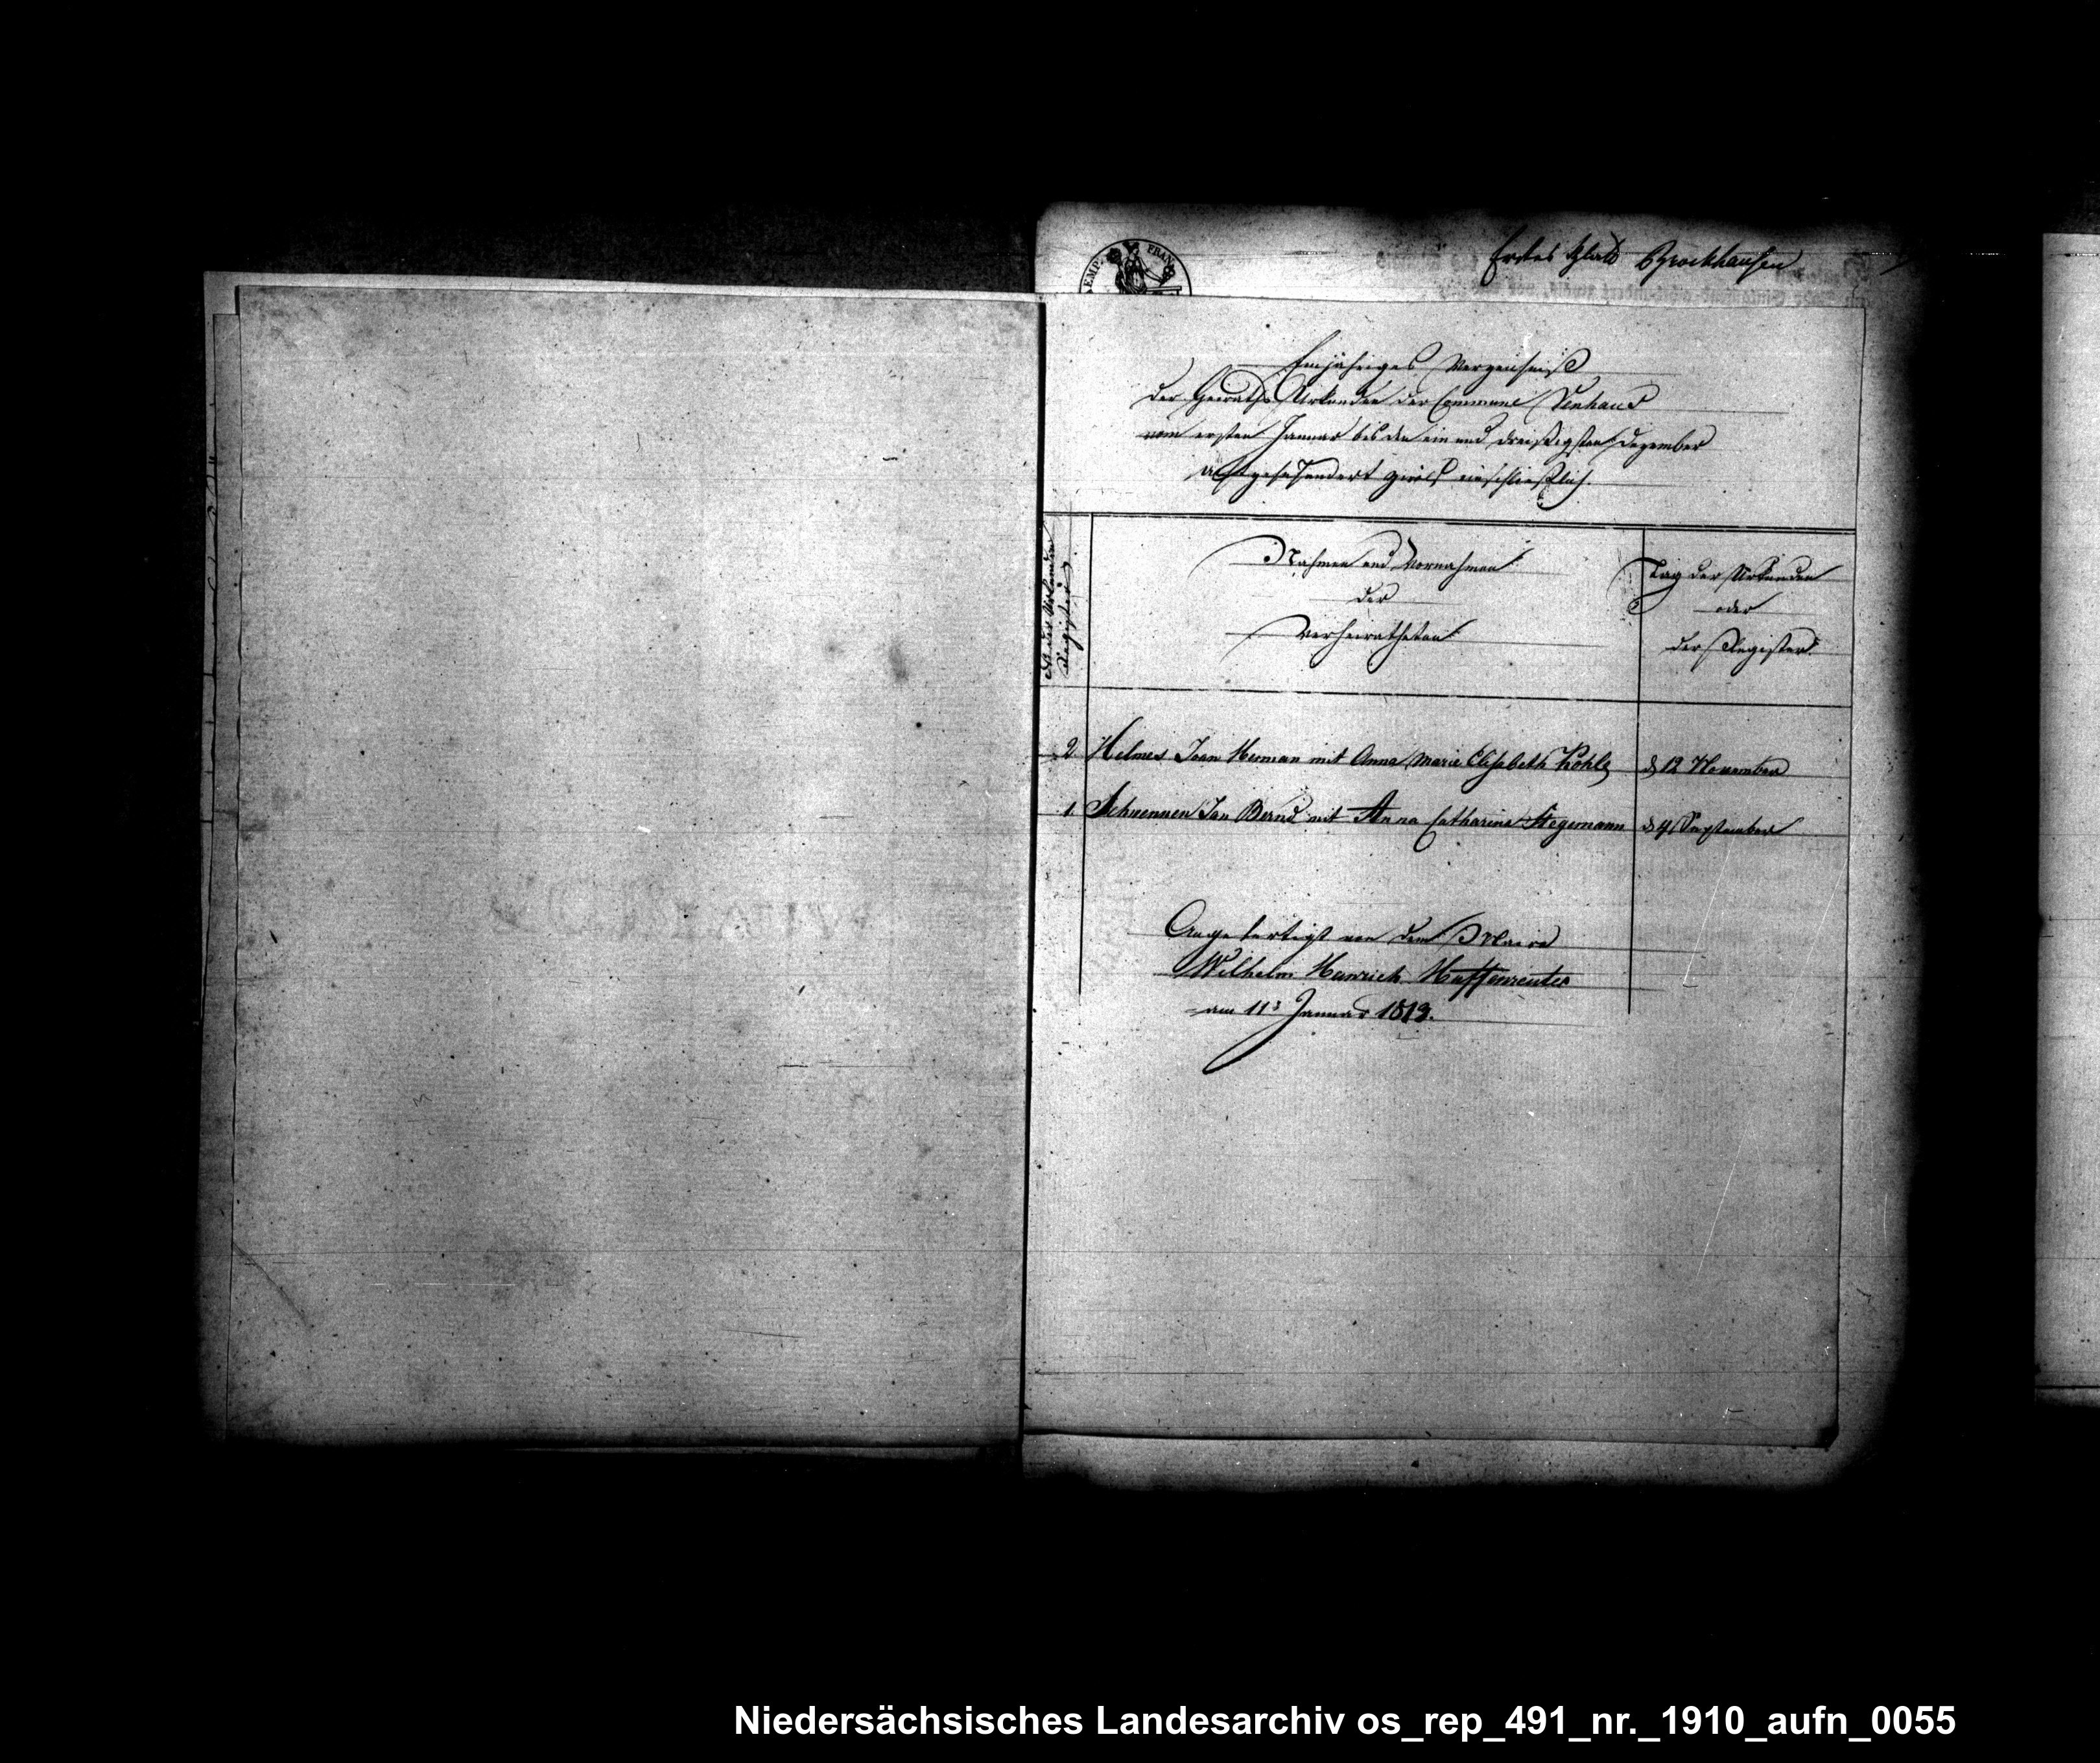 EMP. FRAN
Erstes Blatt Brockhausen
Einjähriges Verzeichniß
der Heiraths Urkunden der Commune Venhaus
vom ersten Januar bis den ein und dreißigsten Dezember
achtzehnhundert zwölf einschließlich.
der Urkunden
Register
Nahmen und Vornahmen
der
Verheiratheten
Tag der Urkunden
oder
der Register
2 Helmes Joan Herman mit Anna Marie Elisabeth Kohle d 12 November
1. Schnennen Jan Bernd mit Anna Catharina Stegemann d 4 September
Angefertigt von dem Maire
Wilhelm Heinrich
am 11t Januar 1813.
Niedersächsisches Landesarchiv os_rep_491_nr._1910_aufn_0055